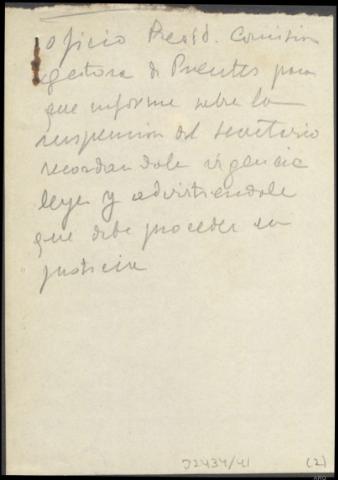 Oficio Presid. Comision
gestora de Puentes para
que informe sobre la
suspension del secretario
recordandole vigencia
leyes y advirtiendole
que debe proceder en
justicia
J2434/41 (2)